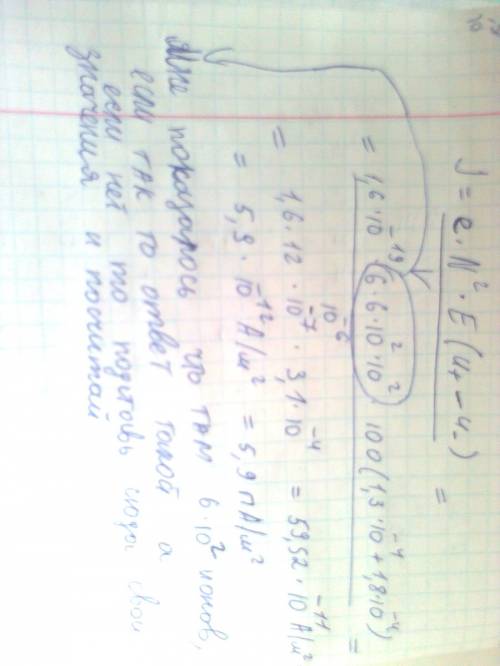 J = e · N² · E (u₊ − u₋) =
= 1,6 · 10⁻¹⁹ 6 · 6 · 10² · 10² 100 (1,3 · 10⁻⁴ + 1,8 · 10⁻⁴) =
10⁻⁶
= 1,6 · 12 · 10⁻⁷ · 3,1 · 10⁻⁴ = 59,52 · 10⁻¹¹ А/м²
= 5,9 · 10⁻¹² А/м² = 5,9 пА/м²
Мне показалось что там 6·10² ионов,
если так то ответ такой а
если нет то подставь сюда свои
значения и посчитай